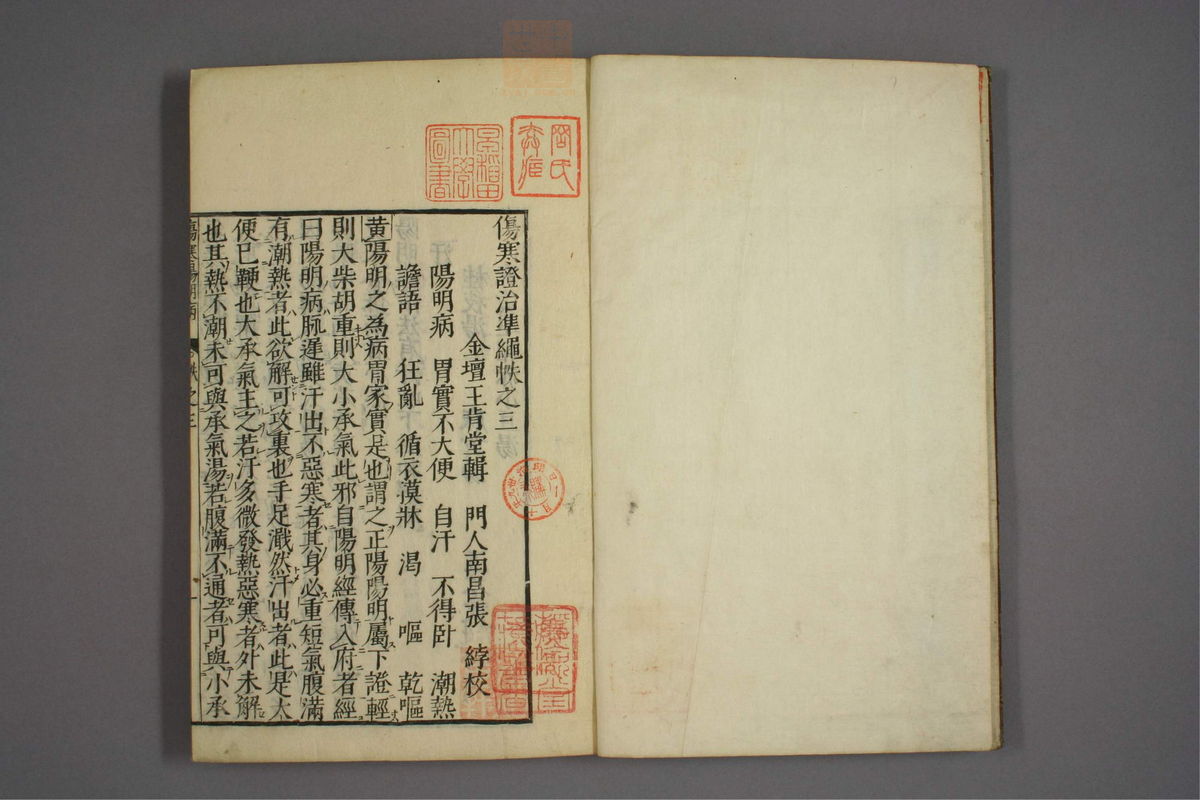 傷寒證治凖繩帙之三
金壇王肯堂輯 門人南昌張 綍校
陽明病 胃實不大便 自汗 不得卧 潮熱
譫語 狂亂 循衣摸牀 渴 嘔 乾嘔
黄陽明之為病胃家實是也謂之正陽陽明屬下證輕
則大柴胡重則大小承氣此邪自陽明經傳入府者經
曰陽明病脈遲雖汗出不惡寒者其身必重短氣腹滿
有潮熱者此欲解可攻裏也手足濈然汗出者此是大
便已鞕也大承氣主之若汗多微發熱惡寒者外未解
也其熱不潮未可與承氣湯若腹滿不通者可與小承
傷寒陽明病 帙之三 一
早稻田大學圖書